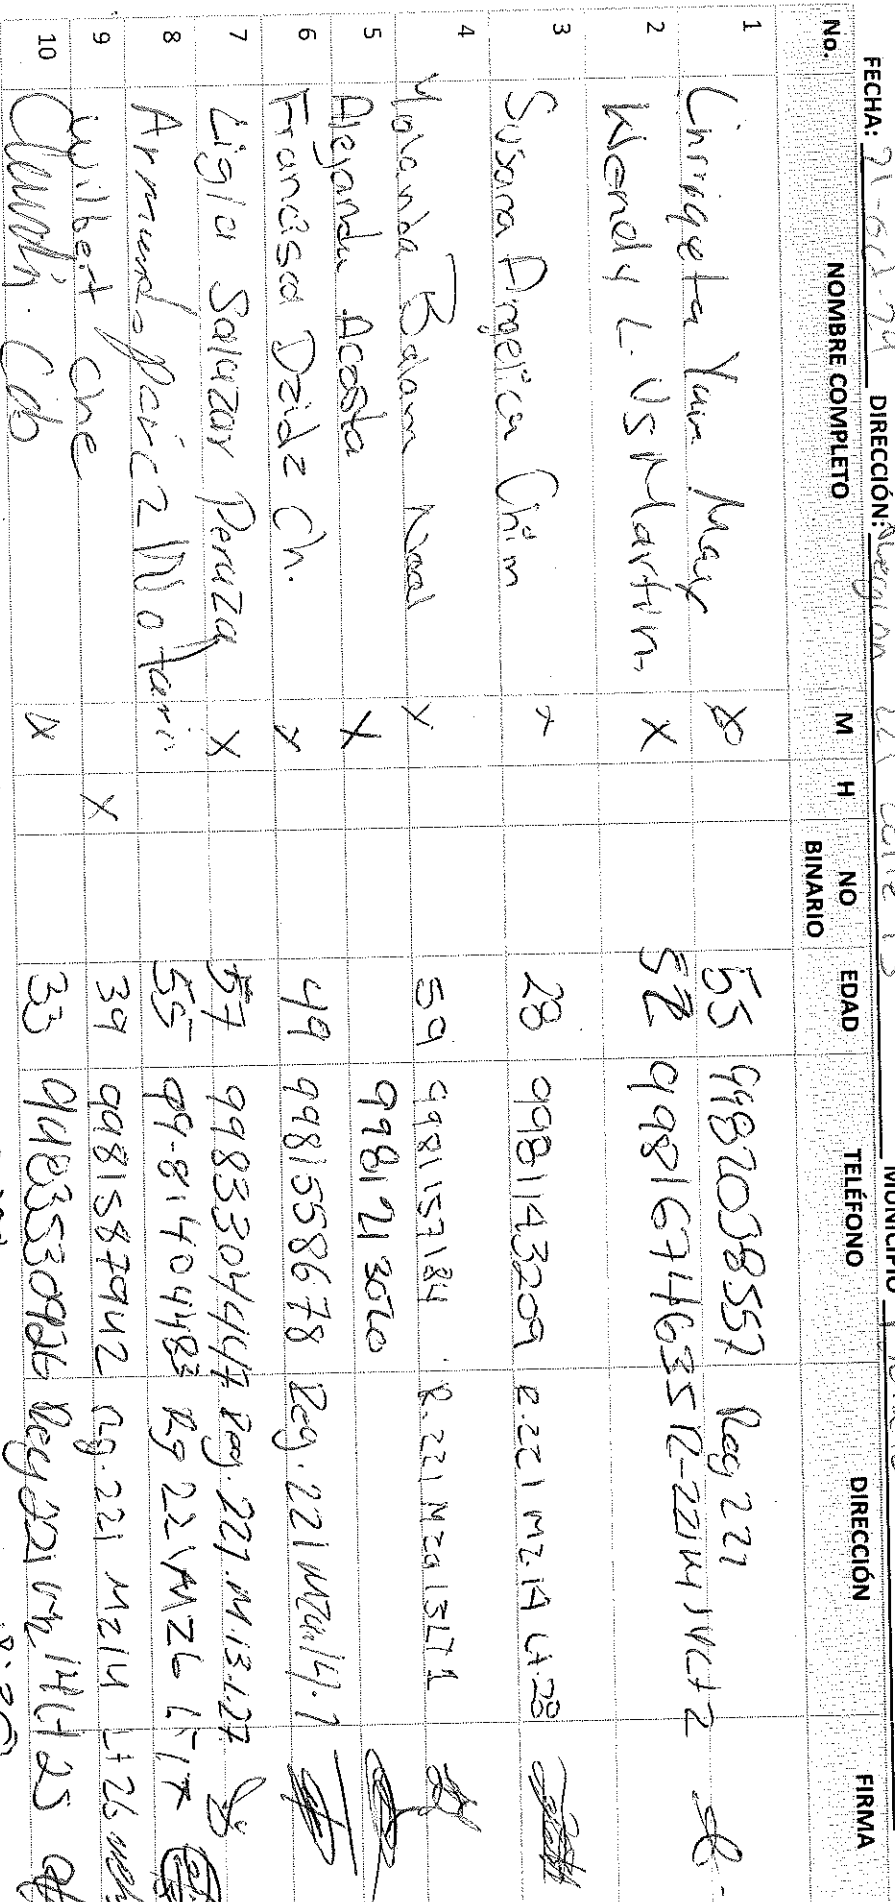 FECHA: 21-oct-24 DIRECCIÓN: Region 221 calle MUNICIPIO
No. NOMBRE COMPLETO M H NO BINARIO EDAD TELÉFONO DIRECCIÓN FIRMA
1 Enriqueta Yam May X 55 9982038557 Reg 221
2 Wendy L. Us Martin. X 52 9981674635 R-221 M14 Lt 2
3 Susana Angelica Chim x 28 9981143209 R.221 MZ.14 Lt.28
4 Yolanda Balam Noal x 59 9981157184 R.221 Mza 13 LT 1
5 Alejandra Acosta X 9981213020
6 Francisca Dzidz Ch. x 49 9981558678 Reg. 221 Mza.14 l.1
7 Ligia Salazar Peruza X 57 9983304447 Reg. 221. M.13.L.27
8 Armando 55 99-81404483 Rg 221 MZ6 LT 17
9 Wilbert che X 39 9981587942 Rg. 221 Mz14 Lt 26
10 Cob X 33 9983530926 Reg 221 Mz 14 Lt 25